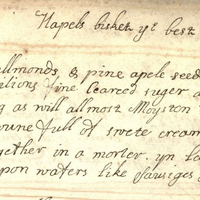 Hapels bisket yt best
Allmonds, & pine apele seed
fine searced suger a
g as will allmost Moyston
full of swete cream
gether in a morter. yn la
pon wafers like sausiges